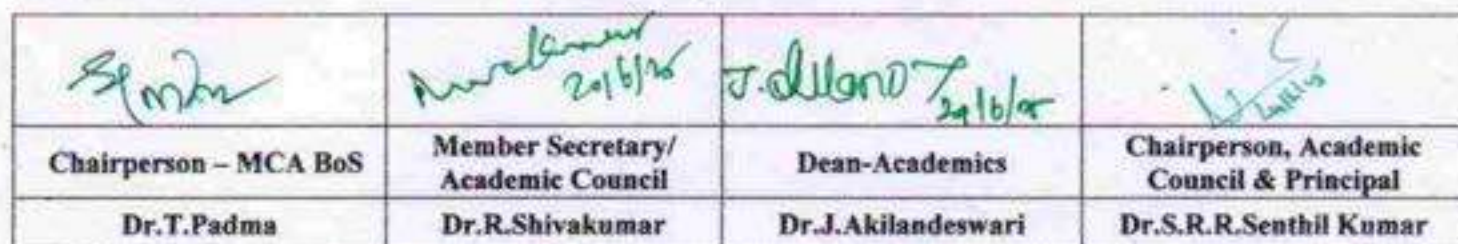 20/6/25
Chairperson – MCA BoS
Member Secretary/
Academic Council
Dean-Academics
Chairperson, Academic
Council & Principal
Dr.T.Padma
Dr.R.Shivakumar
Dr.J.Akilandeswari
Dr.S.R.R.Senthil Kumar